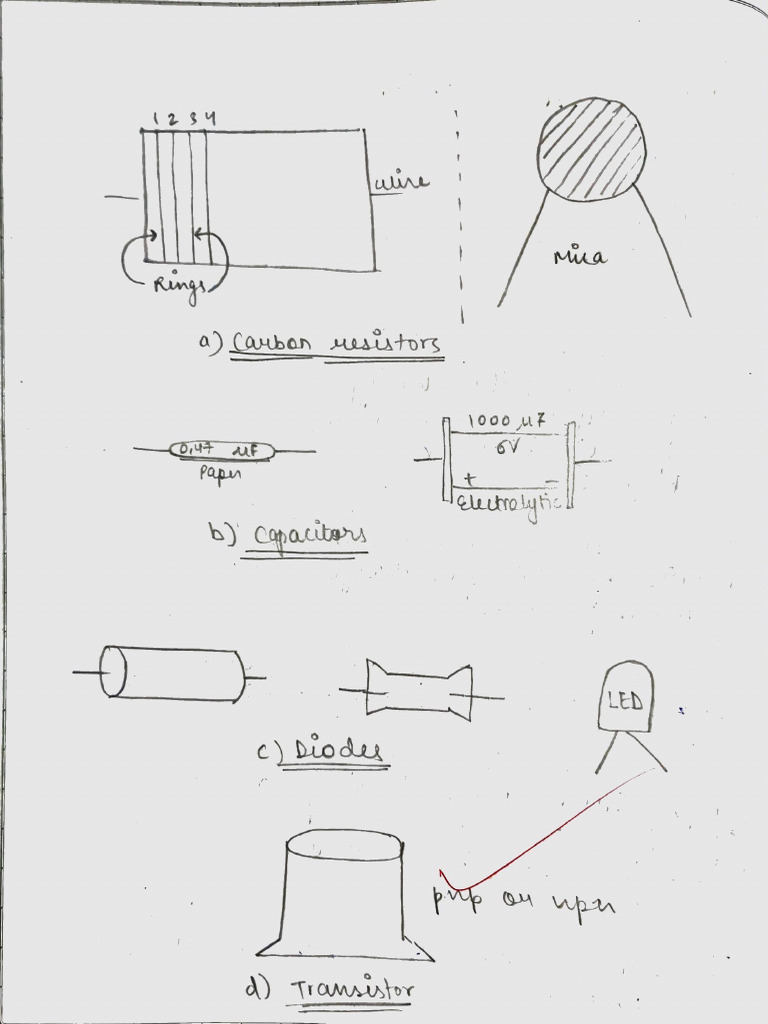 1 2 3 4
wire
Rings
Mica
a) Carbon resistors
0.47 µF
Paper
1000 µF
6V
+ -
Electrolytic
b) Capacitors
LED
c) Diodes
pnp or npn
d) Transistor